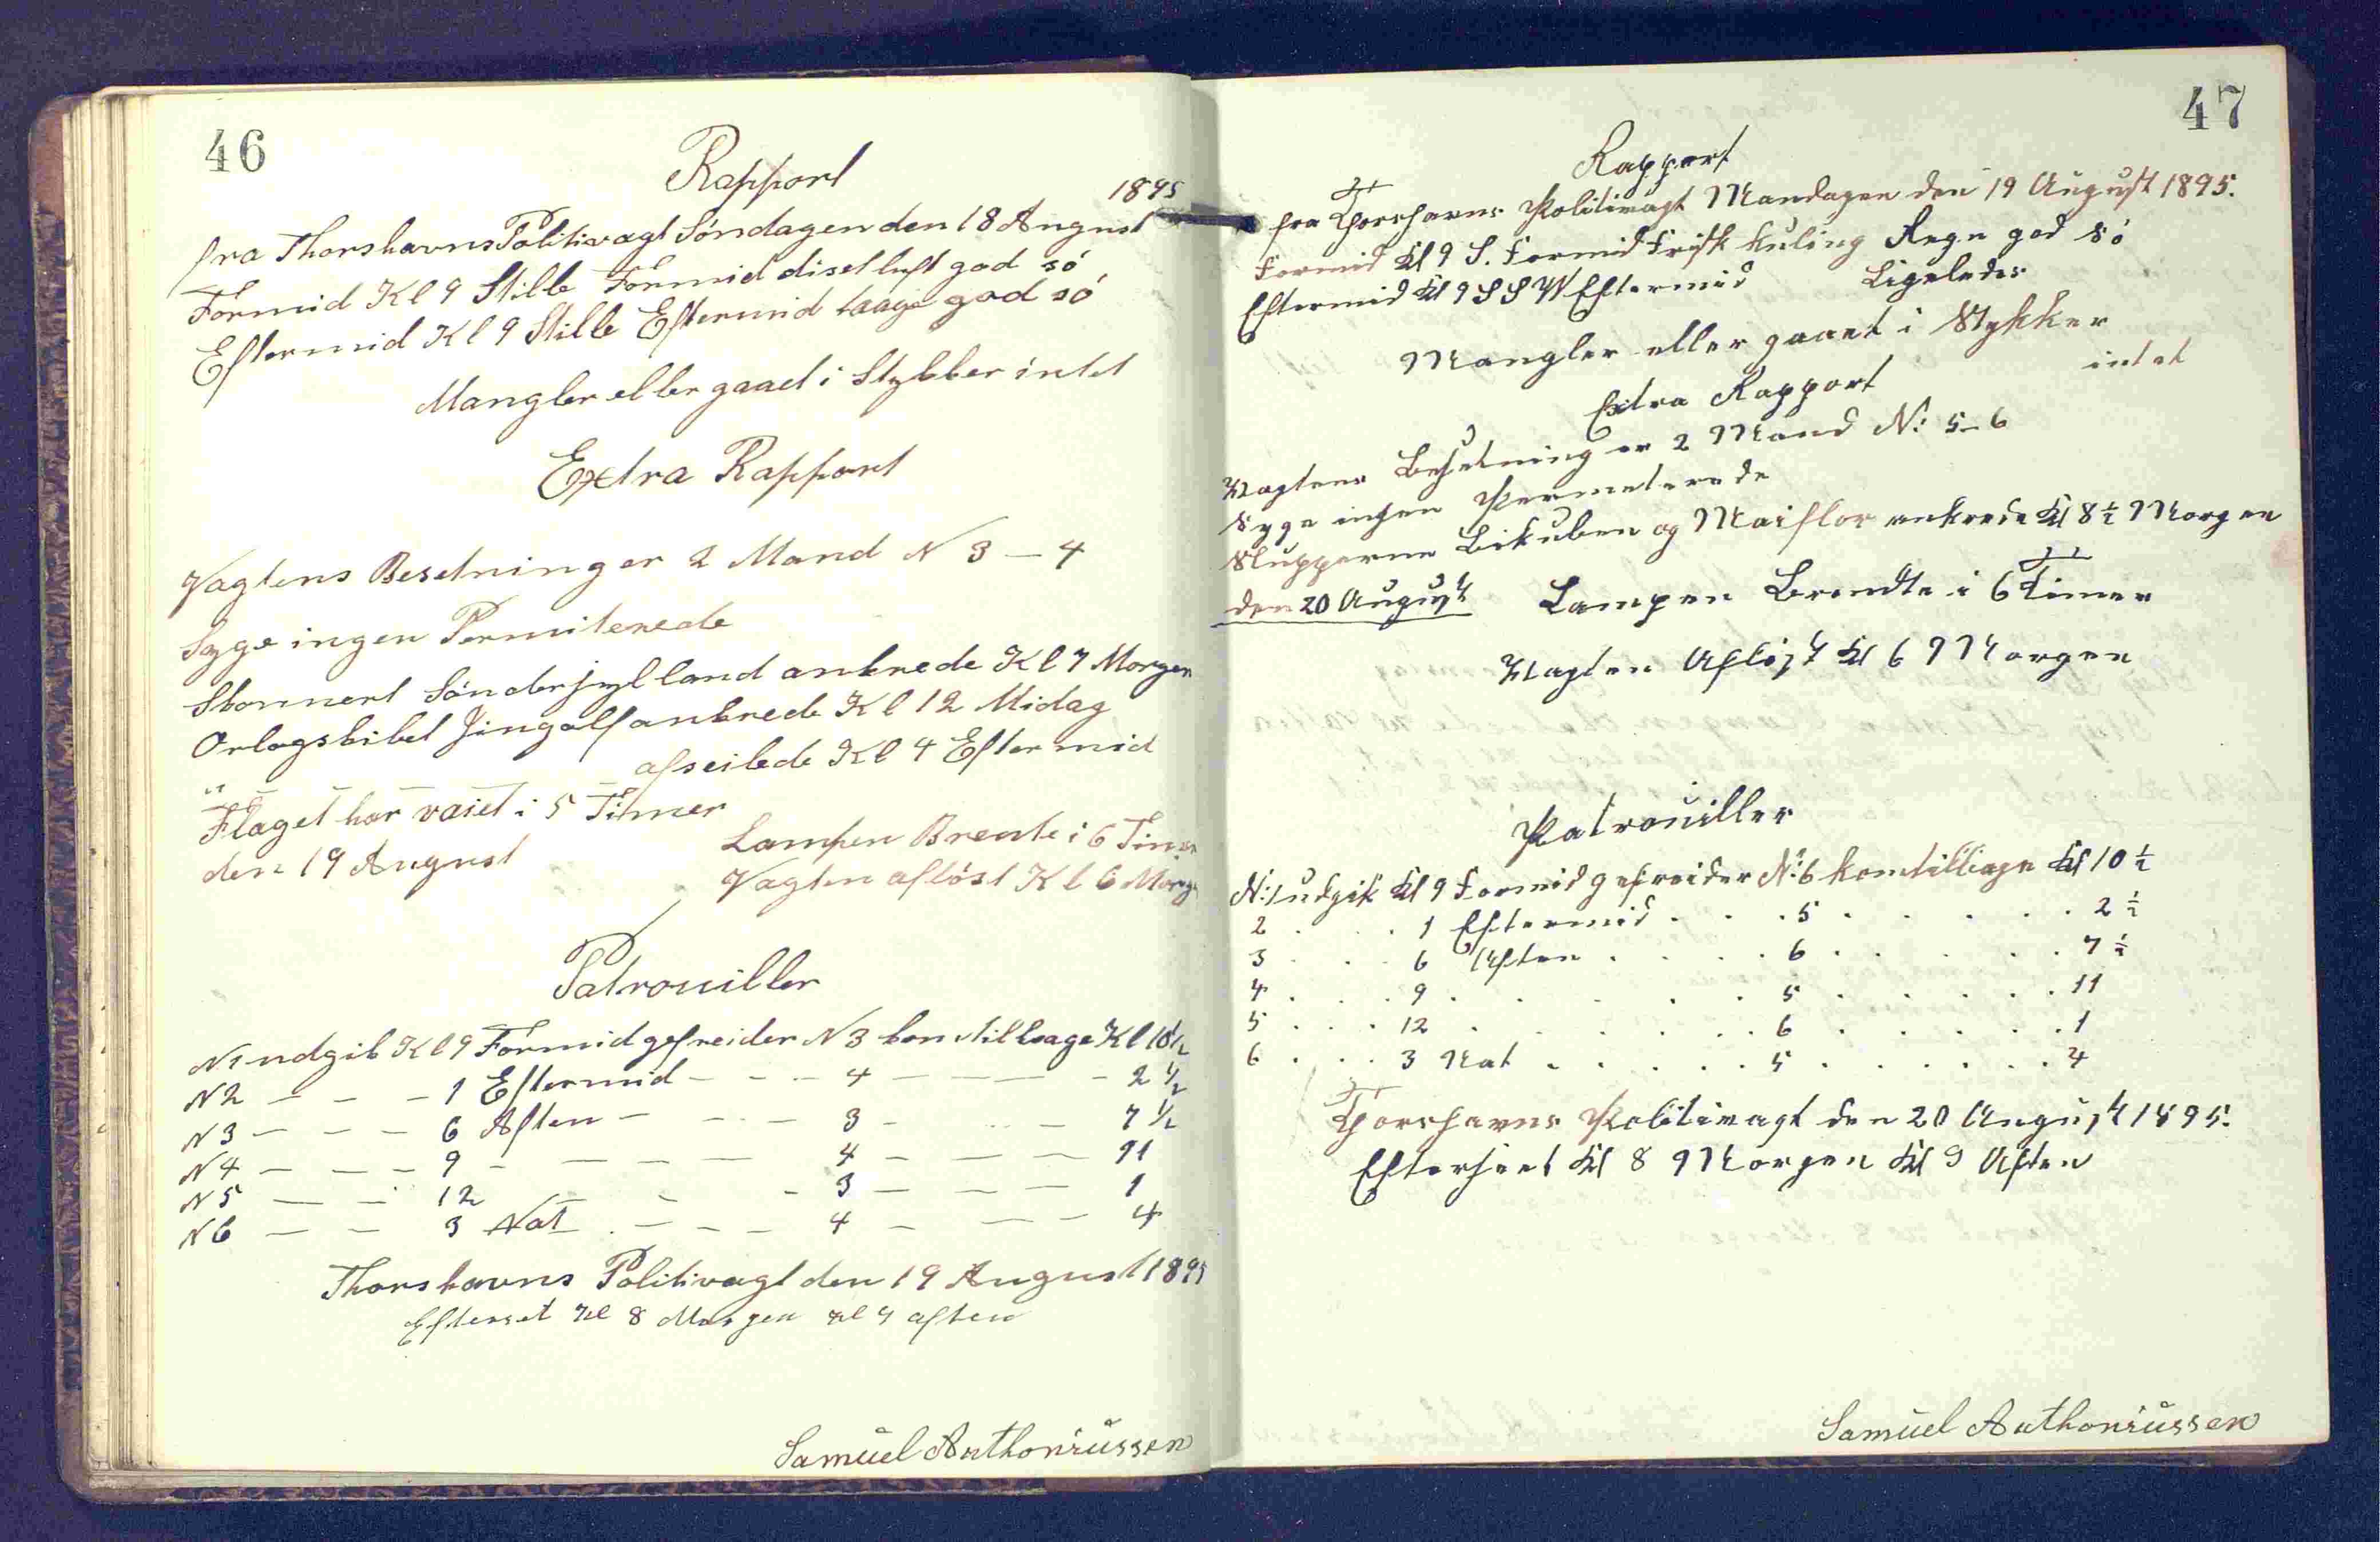 46
Rapport
1895
fra Thorshavns Politivagt Söndagen den 18 August
Formid Kl 9 Stille Formid diset luft god sö
Eftermid Kl 9 Stille Eftermid taage god sö
Mangler eller gaaet i Stykker intet
Extra Rapport
Vagtens Besetning er 2 Mand N 3 — 4
Syge ingen Permiterede
Skonnert Sönderjylland ankrede Kl 7 Morgen
Orlogskibet Jingolf ankrede Kl 12 Midag
" — — — afseilede Kl 4 Eftermid
Flaget har vaiet i 5 Timer
Lampen Brente i 6 Timer
den 19 August
Vagten aflöst Kl 6 Morg
Patrouiller
N1 udgik Kl 9 Formid gefreider N 3 kom tilbage Kl 10 1/2
N2 — — — 1 Eftermid — — — 4 — — — — 2 1/2
N3 — — — 6 Aften — — — 3 — — — 7 1/2
N4 — — — 9 — — — — 4 — — — 11
N5 — — 12 — — — 3 — — — 1
N6 — — 3 Nat — — — 4 — — — 4
Thorshavns Politivagt den 19 August 1895
Efterset Kl 8 Morgen Kl 9 aften
Samuel Anthoniussen
47
Rapport
fra Thorshavns Politivagt Mandagen den 19 August 1895.
Formid Kl 9 S. Formid Frisk kuling Regn god sö
Eftermid Kl 9 SSW Eftermid Ligeledes
Mangler eller gaaet i Stykker
intet
Extra Rapport
Vagtens Besetning er 2 Mand N: 5 – 6
Syge ingen Permeterede
Slupperne Bikuben og Maiflor ankrede Kl 8 1/2 Morgen
den 20 August Lampen Brendte i 6 Timer
Vagten Aflöst Kl 6 Morgen
Patrouiller
N: 1 udgik Kl 9 Formid gefreider N: 6 kom tilbage Kl 10 1/2
2 . . . 1 Eftermid . . . 5 . . . . . 2 1/2
3 . . 6 Aften . . . . 6 . . . . . 7 1/2
4 . . . 9 . . . . . 5 . . . . . 11
5 . . . 12 . . . . . 6 . . . . . 1
6 . . . 3 Nat . . . . . 5 . . . . . . 4
Thorshavns Politivagt den 20 August 1895.
Efterseet Kl 8 Morgen Kl 9 Aften
Samuel Anthoniussen